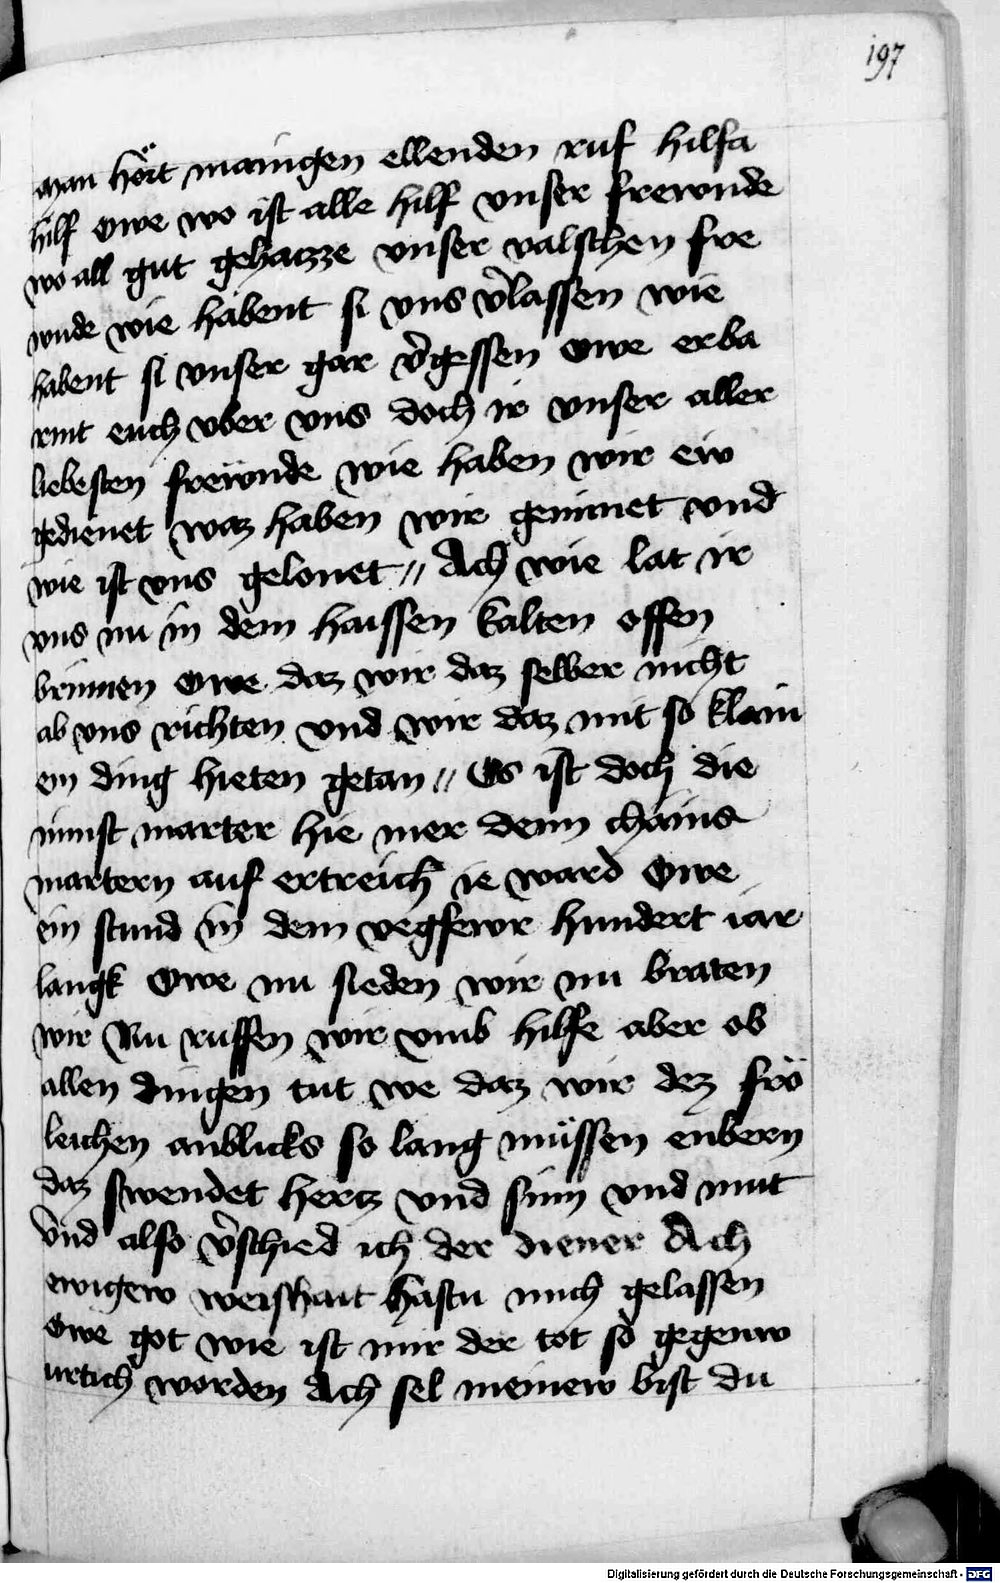 197
man hört mainigen ellenden ruf hilfa
hilf owe wo ist alle hilf vnser frewnde
wo all gut gehaizze vnser valschen fre
wnde wie habent si vns v̾lassen wie
habent si vnser gar v̾gessen owe erba
rmt euch vber vns doch ir vnser aller
liebesten frewnde wie haben wir ew
gedienet waz haben wir geminet vnd
wie ist vns gelonet // Ach wie lat ir
vns nu in dem haissen kalten offen
brinnen owe daz wir daz selber nicht
ab vns richten vnd wir daz mit so klain
em ding hieten getan // Es ist doch die
minst marter hie mer denn chains
martern auf ertreich ie ward Owe
ein stund in dem vegfewr hundert iar
langk Owe nu sieden wir nu braten
wir Nu ruffen wir vmb hilffe aber ob
allen dingen tut we daz wir dez frö
leichen anblicks so lang müssen enbern
daz swendet hertz vnd sinn vnd mut
vnd also v̾schied ich der diener Ach
ewigew weishait hastu mich gelassen
owe got wie ist mir der tot so gegenw
urtich worden Ach sel meinew bist du
Digitalisierung gefördert durch die Deutsche Forschungsgemeinschaft - DFG